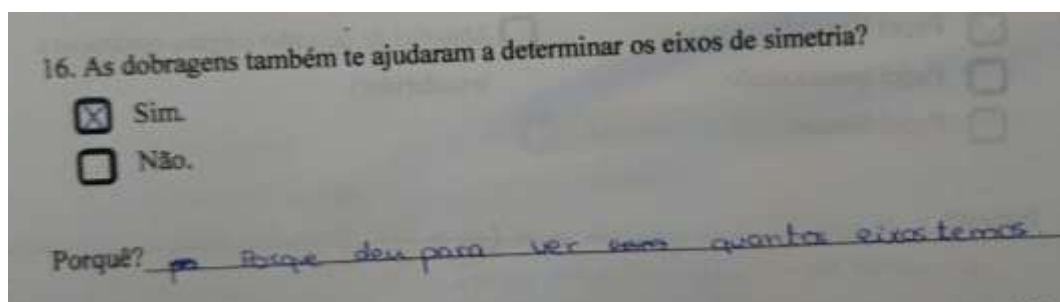 16. As dobragens também te ajudaram a determinar os eixos de simetria?
Sim.
Não.
Porquê? Porque deu para ver quantos eixos temos